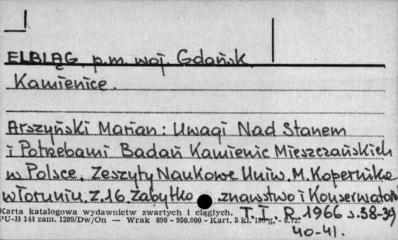 ELBLĄG, p.m. woj. Gdańsk.
Kamienice.
Arszyński Marian: Uwagi Nad Stanem
i Potrzebami Badań Kamienic Mieszczańskich
w Polsce, Zeszyty Naukowe Uniw. M. Kopernika
w Toruniu. Z.16. Zabytko znawstwo i Konserwators
T. II. R 1966 s. 38-39
Karta katalogowa wydawnictw zwartych i ciągłych.
PU-B 144 zam. 1209/Dw/On — Wrak 898 - 950.000 - Kart. 5 kl.
40-41.